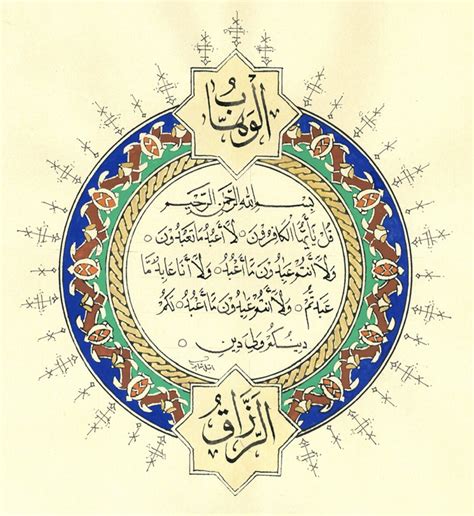 الوَهَّابُ
بسم الله الرحمن الرحيم
قل يأيها الكافرون ○ لا أعبد ما تعبدون ○
ولا أنتم عبدون ما أعبد ○ ولا أنا عابد ما
عبدتم ○ ولا أنتم عبدون ما أعبد ○ لكم
دينكم ولي دين ○
الرَّزَّاقُ